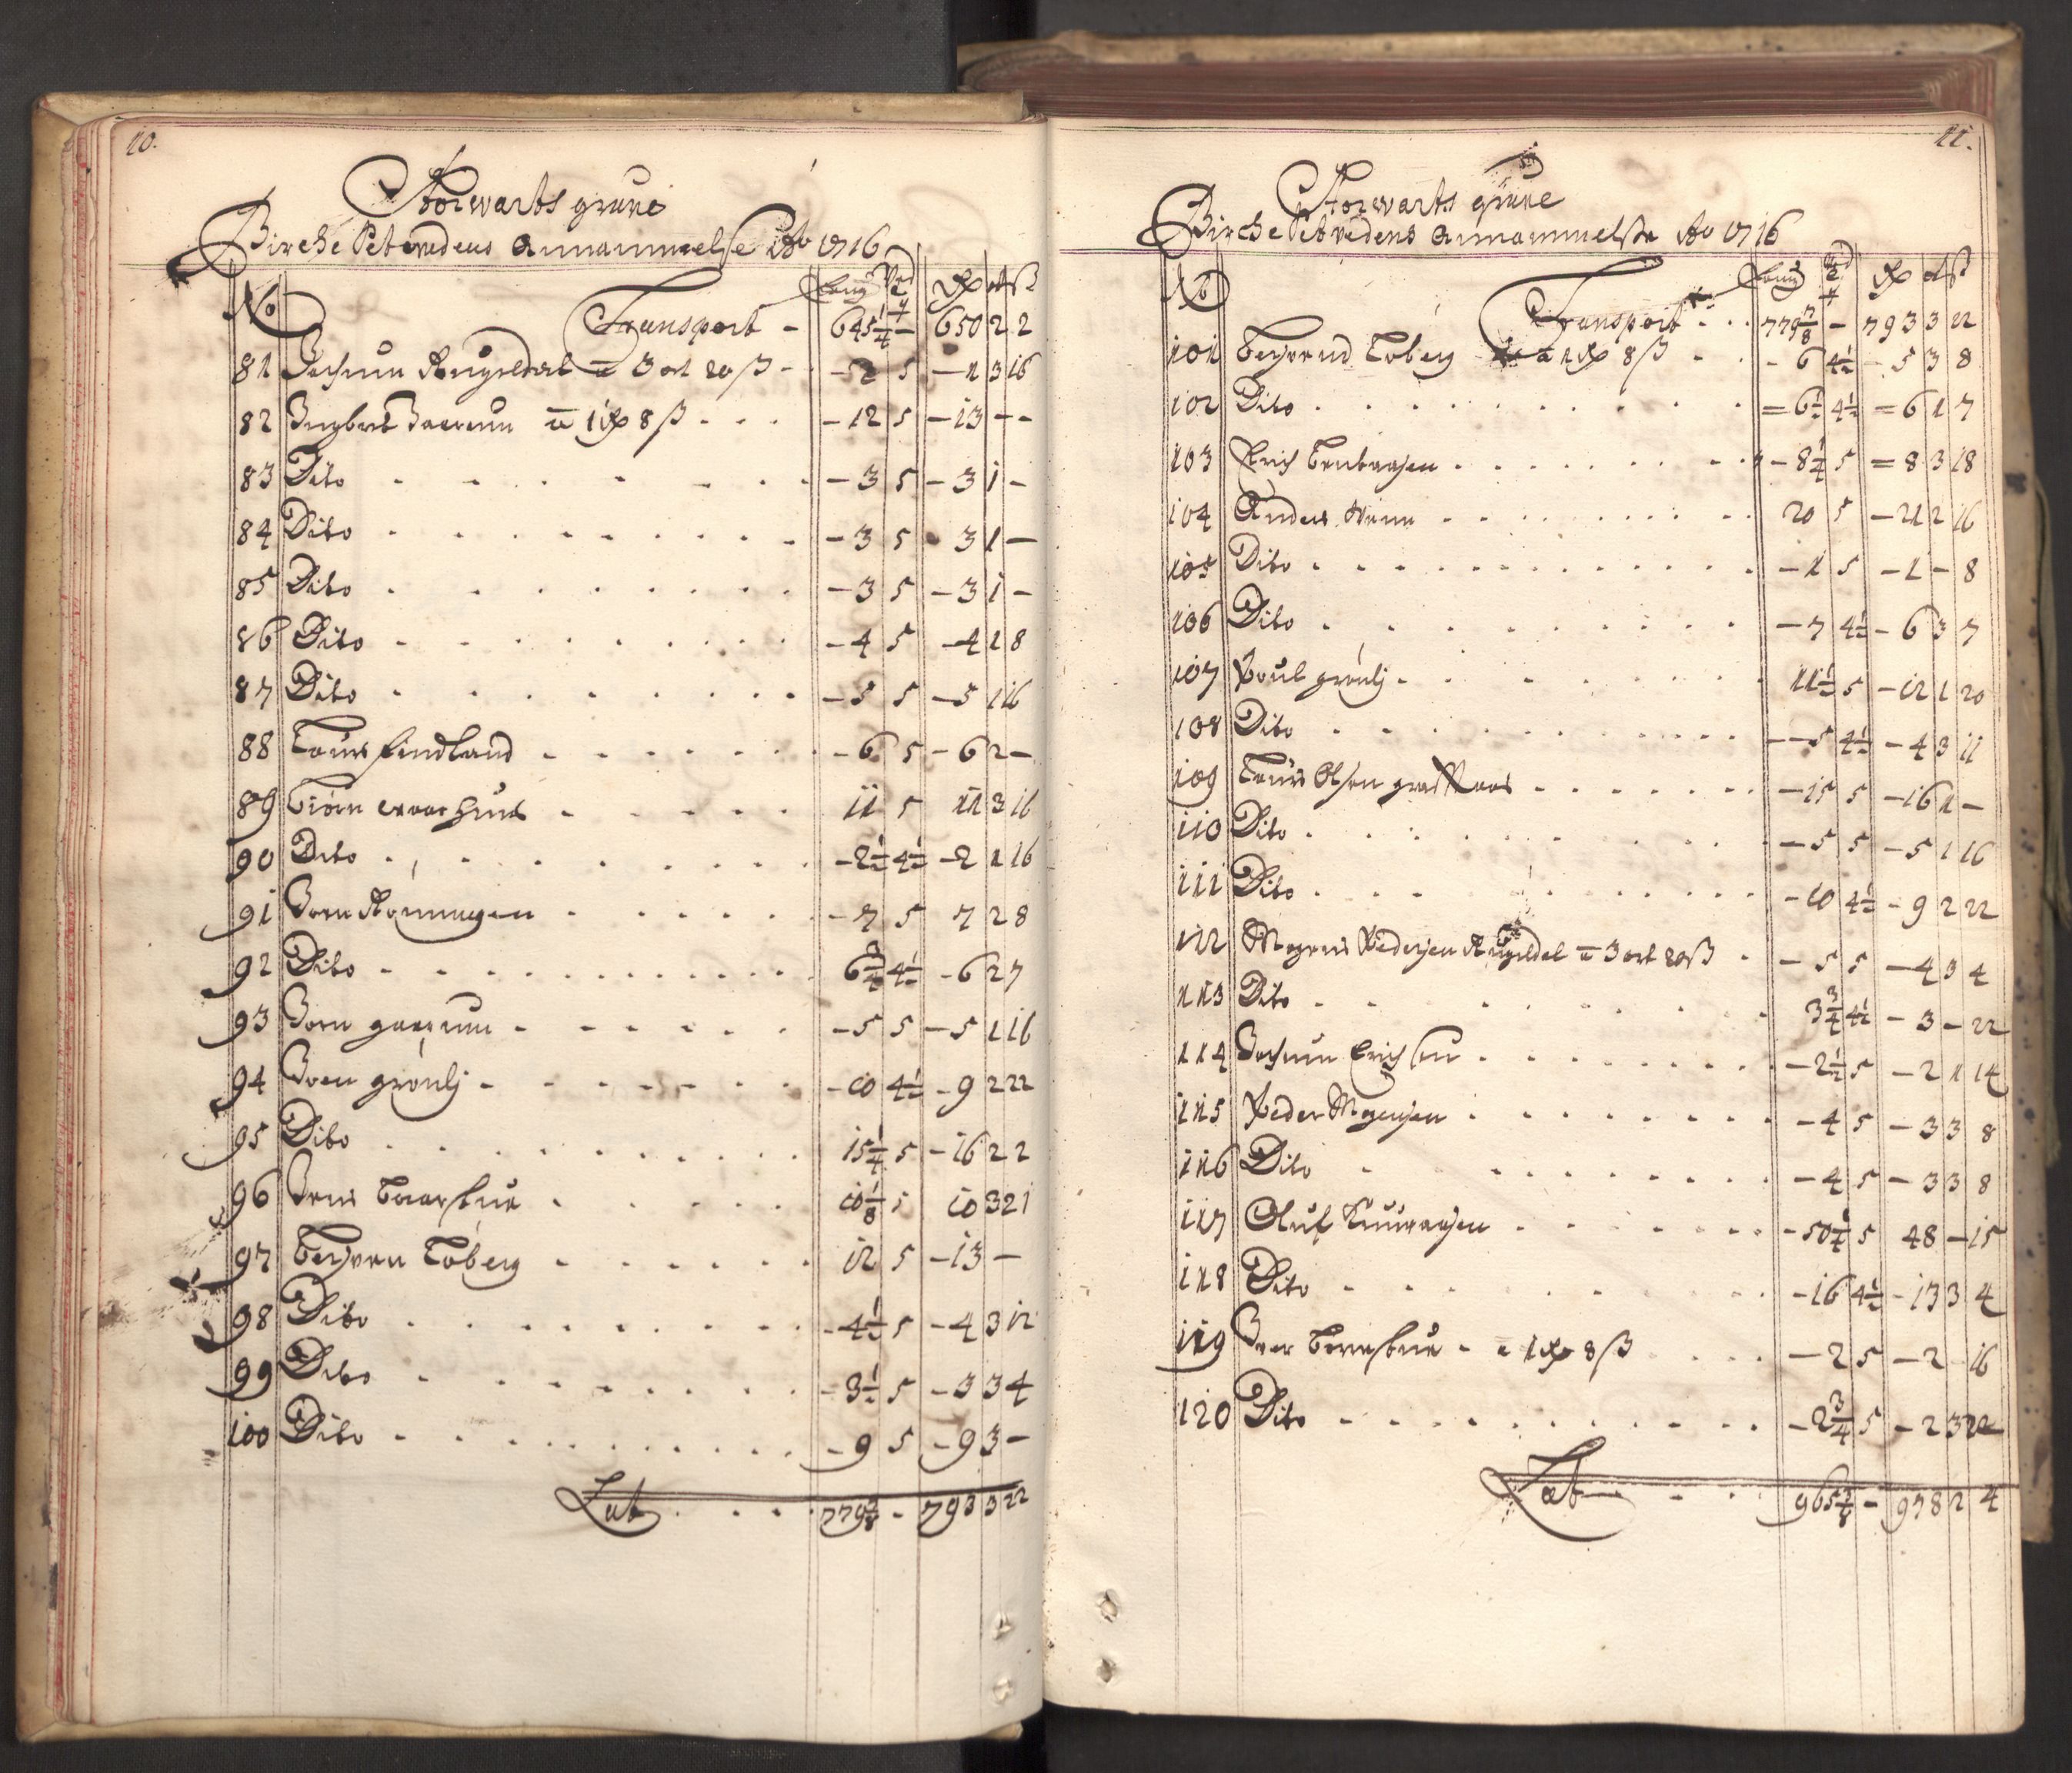 10.
Storwarts grune
Birche Vetvedens Annammelse Ao 1716
No Transport - 645 1/4 - 650 2 2
81 Jochum Rugeldal a 3 ort 20 ß - - 2 5 - 1 3 16
82 Ingbret a 1 Rp 8 ß - - - 12 5 - 13 - -
83 Dito - 3 5 - 3 1 -
84 Dito - 3 5 - 3 1 -
85 Dito - 3 5 - 3 1 -
86 Dito - 4 5 - 4 1 8
87 Dito - 5 5 - 5 1 16
88 Lars - 6 5 - 6 2 -
89 Biörn 11 5 11 3 16
90 Dito - 2 1/2 4 1/2 - 2 1 16
91 Joen Rönningen - 7 5 7 2 8
92 Dito 6 3/4 4 1/2 - 6 2 7
93 Joen - 5 5 - 5 1 16
94 Joen grönli - - 10 4 1/2 - 9 2 22
95 Dito 15 1/4 5 - 16 2 2
96 Jens 10 1/8 5 10 3 21
97 Toberg 12 5 - 13 -
98 Dito - 4 1/2 5 - 4 3 12
99 Dito - 3 1/2 5 - 3 3 4
100 Dito - 9 5 - 9 3 -
Lat 779 7/8 - 793 3 22
11.
Storwarts grune
Birche Vetvedens Annammelse Ao 1716
No
Transport 779 7/8 - 793 3 22
101 Toberg a 1 Rp 8 ß - 6 4 1/2 - 5 3 8
102 Dito = 6 1/2 4 1/2 = 6 1 7
103 Erich - 8 1/4 5 = 8 3 18
104 Anders 20 5 - 21 2 16
105 Dito - 1 5 - 1 - 8
106 Dito - 7 4 1/2 - 6 3 7
107 Poul grönli 11 1/2 5 - 12 1 20
108 Dito - 5 4 1/2 - 4 3 11
109 Lars Olsen - 15 5 - 16 1 -
110 Dito - 5 5 - 5 1 16
111 Dito - 10 4 1/2 - 9 2 22
112 Mogens Pedersen Rugeldal a 3 ort 20 ß - 5 5 - 4 3 4
113 Dito 3 3/4 4 1/2 - 3 - 22
114 Jochum Erichsen - 2 1/2 5 - 2 1 14
115 Peder Mogensen - 4 5 - 3 3 8
116 Dito - 4 5 - 3 3 8
117 Oluf - 50 1/4 5 48 - 15
118 Dito - 16 4 1/2 - 13 3 4
119 Iver - a 1 Rp 8 ß - 2 5 - 2 - 16
120 Dito - 2 3/4 5 - 2 3
Lat 965 - 978 2 4